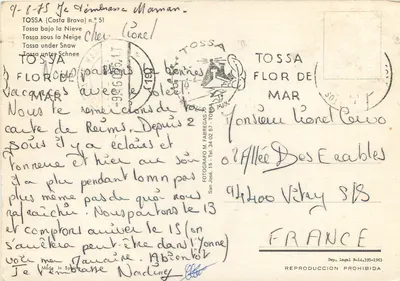 9-8-85 Je t'embrasse Maman
TOSSA (Costa Brava) n.° 51
Tossa bajo la Nieve
Tossa sous la Neige
Tossa under Snow
Tossa unter Schnee
Cher Lionel
TOSSA
FLOR DE
MAR
TOSSA
TOSSA
FLOR DE
MAR
Nous passons de bonnes
vacances avec le soleil
Nous te remercions de ta
carte de Reims. Depuis 2
jours il y a éclairs et
tonnerre et hier au soir
il y a plu pendant
plus même pas de quoi nous
rafraichir. Nous partons le 13
et comptons arriver le 15 (on
s'arrêtera peut-être dans l'Yonne)
voir mon A bientôt
Je t'embrasse Nadine
FOTOGRAFO M. FABREGAS
Monsieur Lionel
8 Allée Des Erables
94400 Vitry S/S
FRANCE
Dep. Legal B-
REPRODUCCION PROHIBIDA
Made in Spain